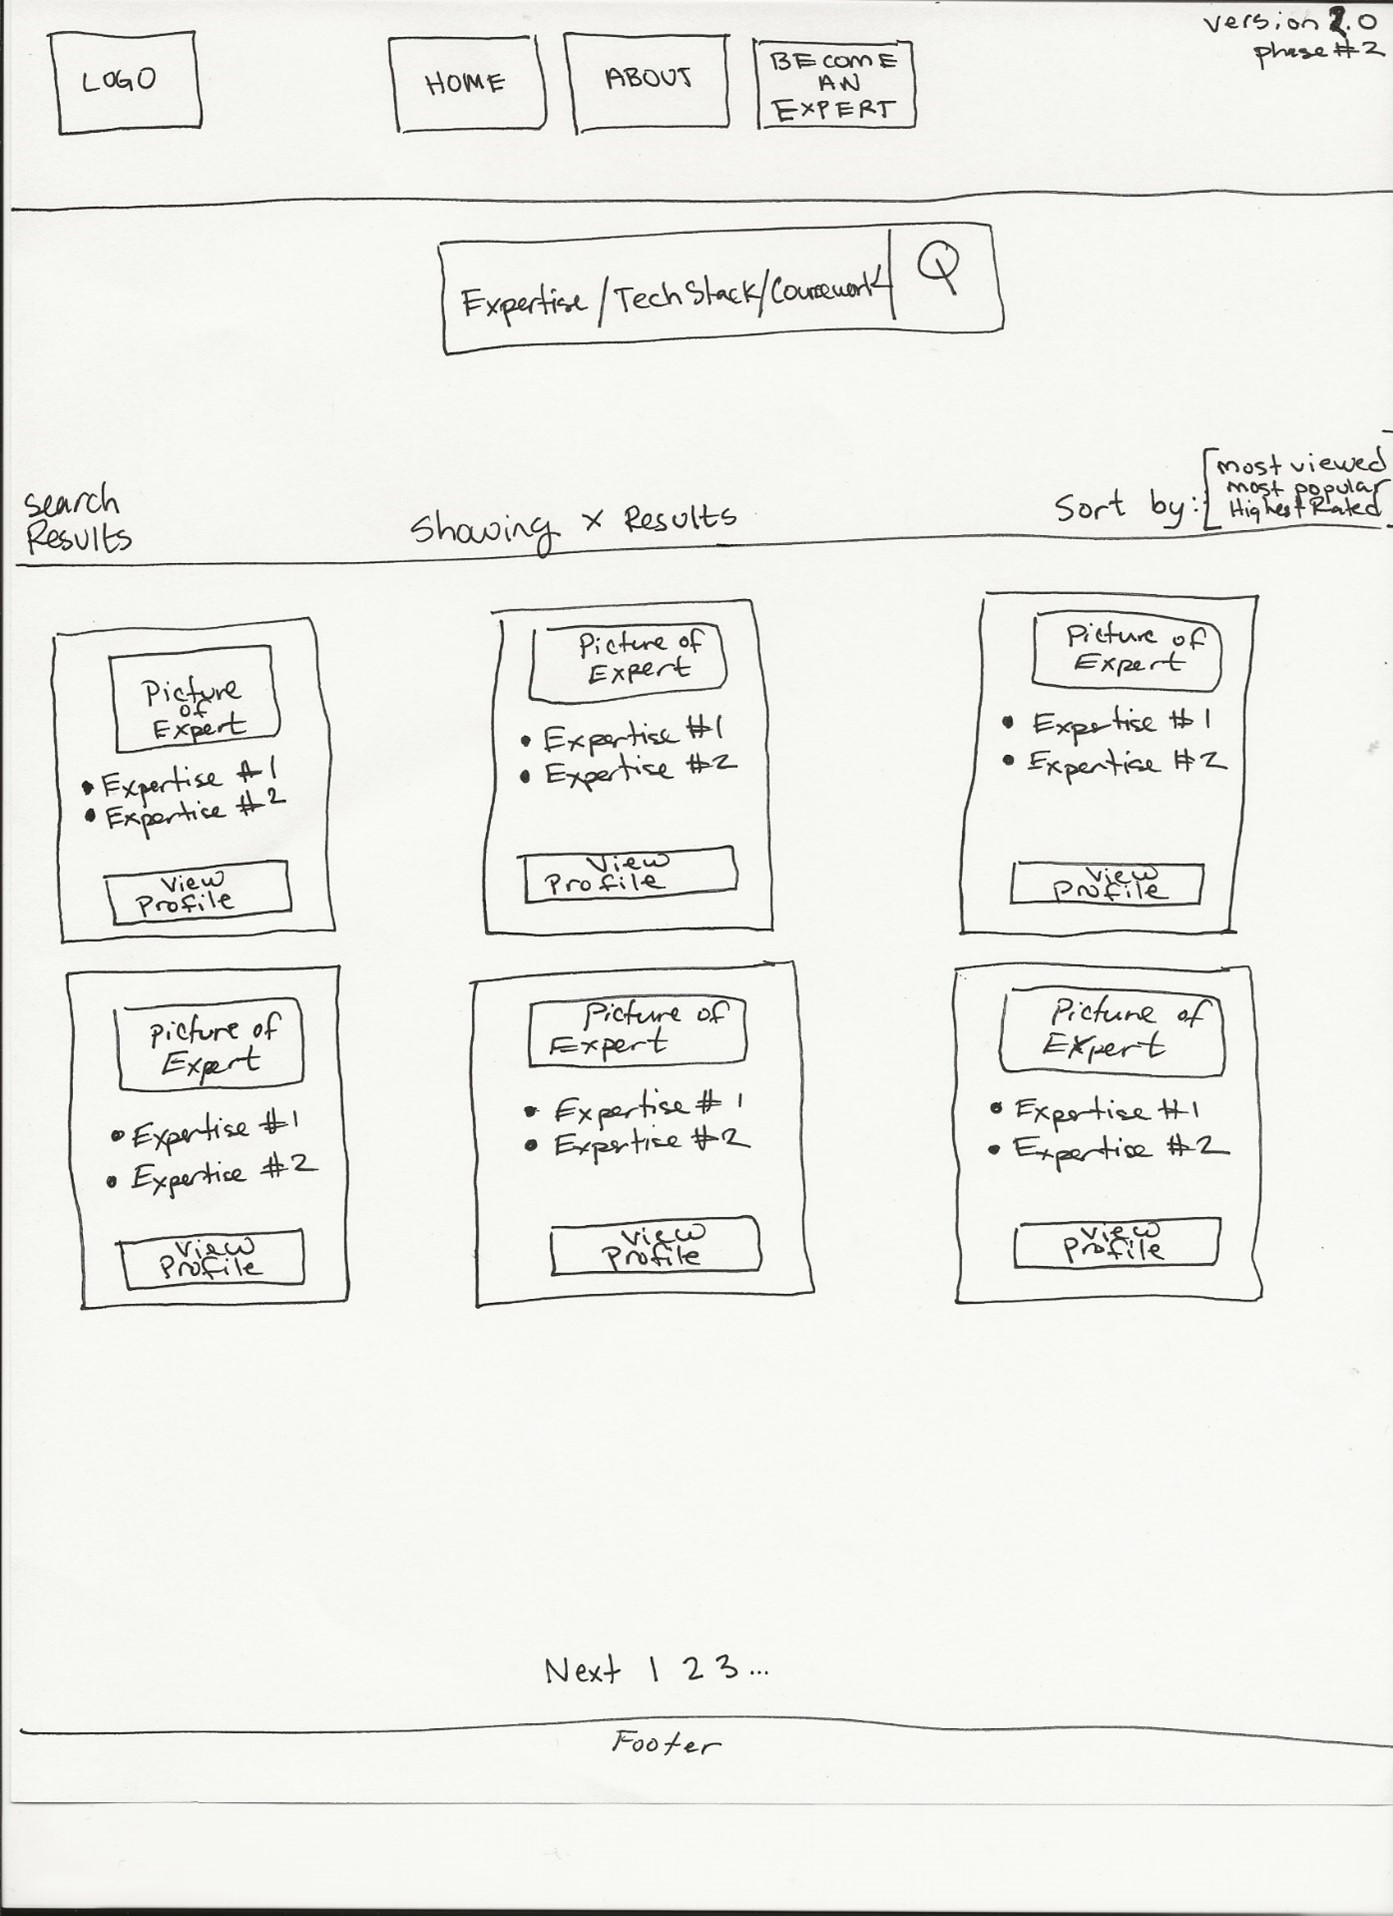 version 2.0
phase #2
LOGO
HOME
ABOUT
BECOME
AN
EXPERT
Expertise/TechStack/Coursework
Search
Results
Showing x Results
Sort by:
most viewed
most popular
Highest Rated
Picture
of
Expert
• Expertise #1
• Expertise #2
View
Profile
Picture of
Expert
• Expertise #1
• Expertise #2
View
Profile
Picture of
Expert
• Expertise #1
• Expertise #2
View
Profile
Picture of
Expert
• Expertise #1
• Expertise #2
View
Profile
Picture of
Expert
• Expertise # 1
• Expertise #2
View
Profile
Picture of
Expert
• Expertise #1
• Expertise #2
View
Profile
Next 1 2 3 ...
Footer